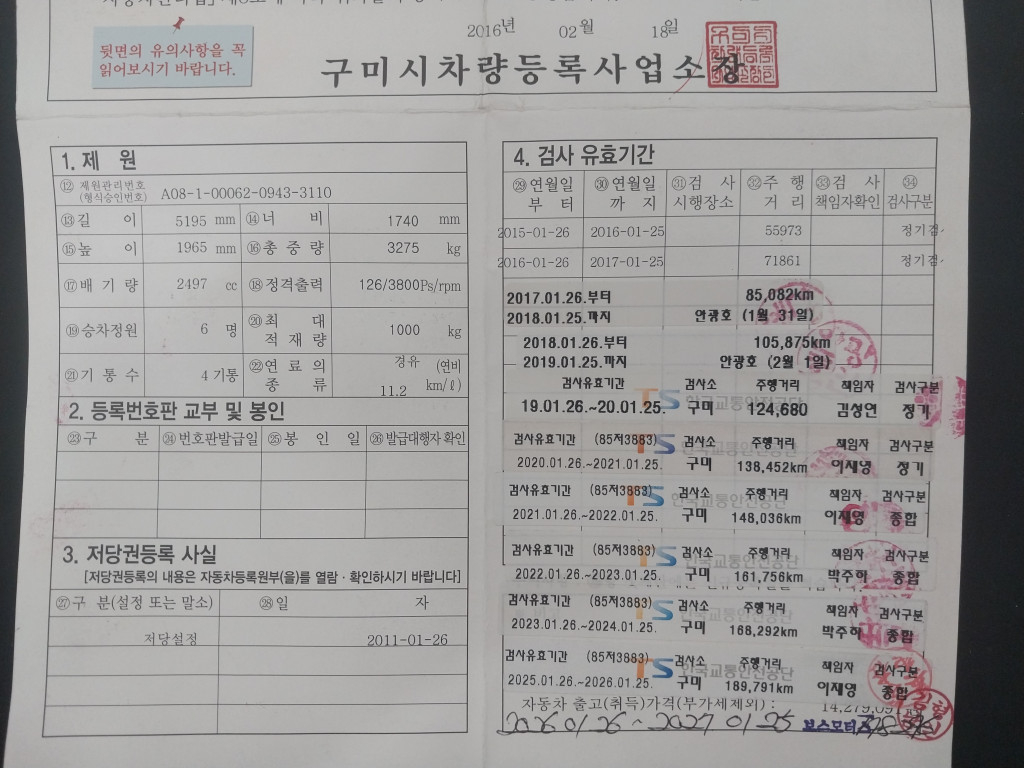 2016년 02월 18일
뒷면의 유의사항을 꼭
읽어보시기 바랍니다.
구미시차량등록사업소장
1. 제 원
⑫ 제원관리번호 (형식승인번호) A08-1-00062-0943-3110
⑬길 이 5195 mm ⑭너 비 1740 mm
⑮높 이 1965 mm ⑯총 중 량 3275 kg
⑰배 기 량 2497 cc ⑱정격출력 126/3800Ps/rpm
⑲승차정원 6 명 ⑳최 대 적 재 량 1000 kg
㉑기 통 수 4기통 ㉒연 료 의 종 류 경유 (연비 11.2 km/ℓ)
2. 등록번호판 교부 및 봉인
㉓구 분 ㉔번호판발급일 ㉕봉 인 일 ㉖발급대행자 확인
3. 저당권등록 사실
[저당권등록의 내용은 자동차등록원부(을)를 열람 · 확인하시기 바랍니다]
㉗구 분(설정 또는 말소) ㉘일 자
저당설정 2011-01-26
4. 검사 유효기간
㉙연월일 부 터 ㉚연월일 까 지 ㉛검 사 시행장소 ㉜주 행 거 리 ㉝검 사 책임자확인 ㉞검사구분
2015-01-26 2016-01-25 55973 정기검
2016-01-26 2017-01-25 71861 정기검
2017.01.26.부터 85,082km
2018.01.25.까지 안광호 (1월 31일)
2018.01.26.부터 105,875km
2019.01.25.까지 안광호 (2월 1일)
검사유효기간 검사소 주행거리 책임자 검사구분
19.01.26.~20.01.25. 구미 124,680 김성연 정기
검사유효기간 (85저3883) 검사소 주행거리 책임자 검사구분
2020.01.26.~2021.01.25. 구미 138,452km 이재영 정기
검사유효기간 (85저3883) 검사소 주행거리 책임자 검사구분
2021.01.26.~2022.01.25. 구미 148,036km 이재영 종합
검사유효기간 (85저3883) 검사소 주행거리 책임자 검사구분
2022.01.26.~2023.01.25. 구미 161,756km 박주하 종합
검사유효기간 (85저3883) 검사소 주행거리 책임자 검사구분
2023.01.26.~2024.01.25. 구미 168,292km 박주하 종합
검사유효기간 (85저3883) 검사소 주행거리 책임자 검사구분
2025.01.26.~2026.01.25. 구미 189,791km 이재영 종합
자동차 출고(취득)가격(부가세제외) : 14,279,091
2026 01 26 ~ 2027 01 25 보스모터스